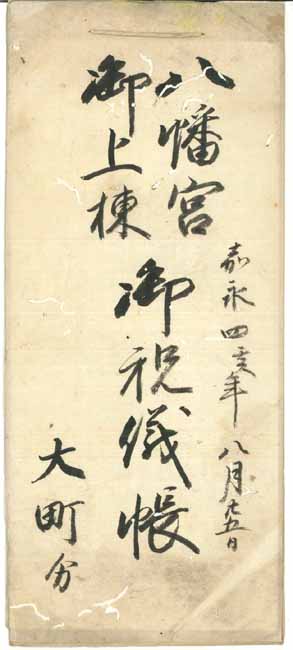 嘉永四亥年八月廿五日
八幡宮
御上棟
御祝儀帳
大町分